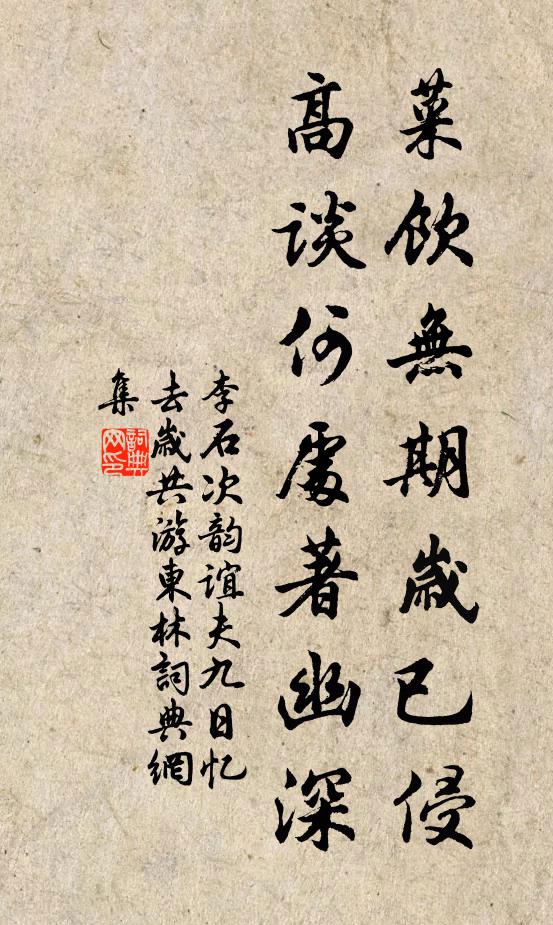 菜飲無期歲已侵
高談何處著幽深
李石次韵谊夫九日忆
去歲共游東林詞典網
集
詞典网印